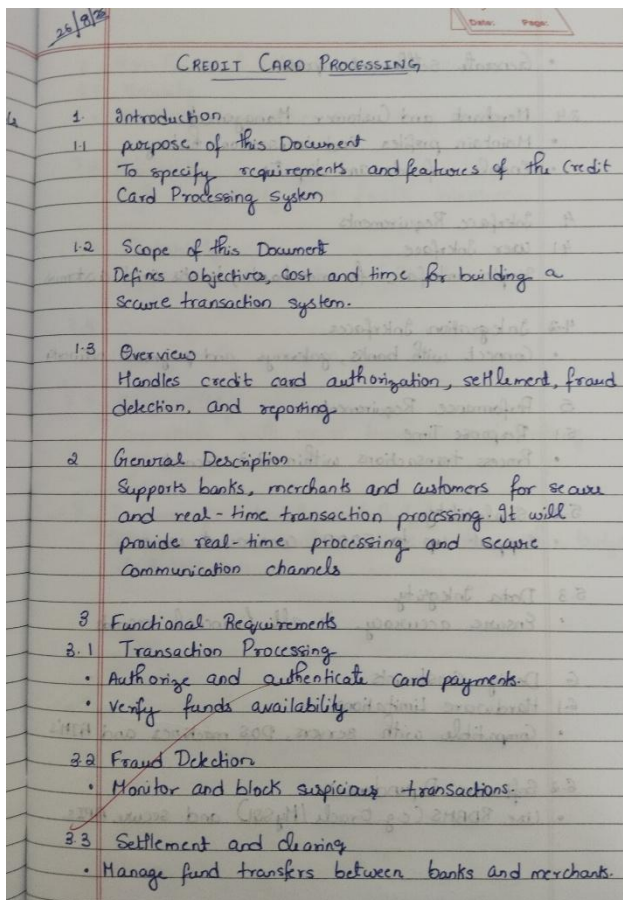 26/8/25
Date: Page:
CREDIT CARD PROCESSING
1. Introduction
1.1 purpose of this Document
To specify requirements and features of the Credit
Card Processing system
1.2 Scope of this Document
Defines Objectives, Cost and time for building a
secure transaction system.
1.3 Overview
Handles credit card authorization, settlement, fraud
detection, and reporting
2 General Description
Supports banks, merchants and customers for secure
and real-time transaction processing. It will
provide real-time processing and secure
communication channels
3 Functional Requirements
3.1 Transaction Processing
• Authorize and authenticate card payments.
• Verify funds availability
3.2 Fraud Detection
• Monitor and block suspicious transactions.
3.3 Settlement and clearing
• Manage fund transfers between banks and merchants.